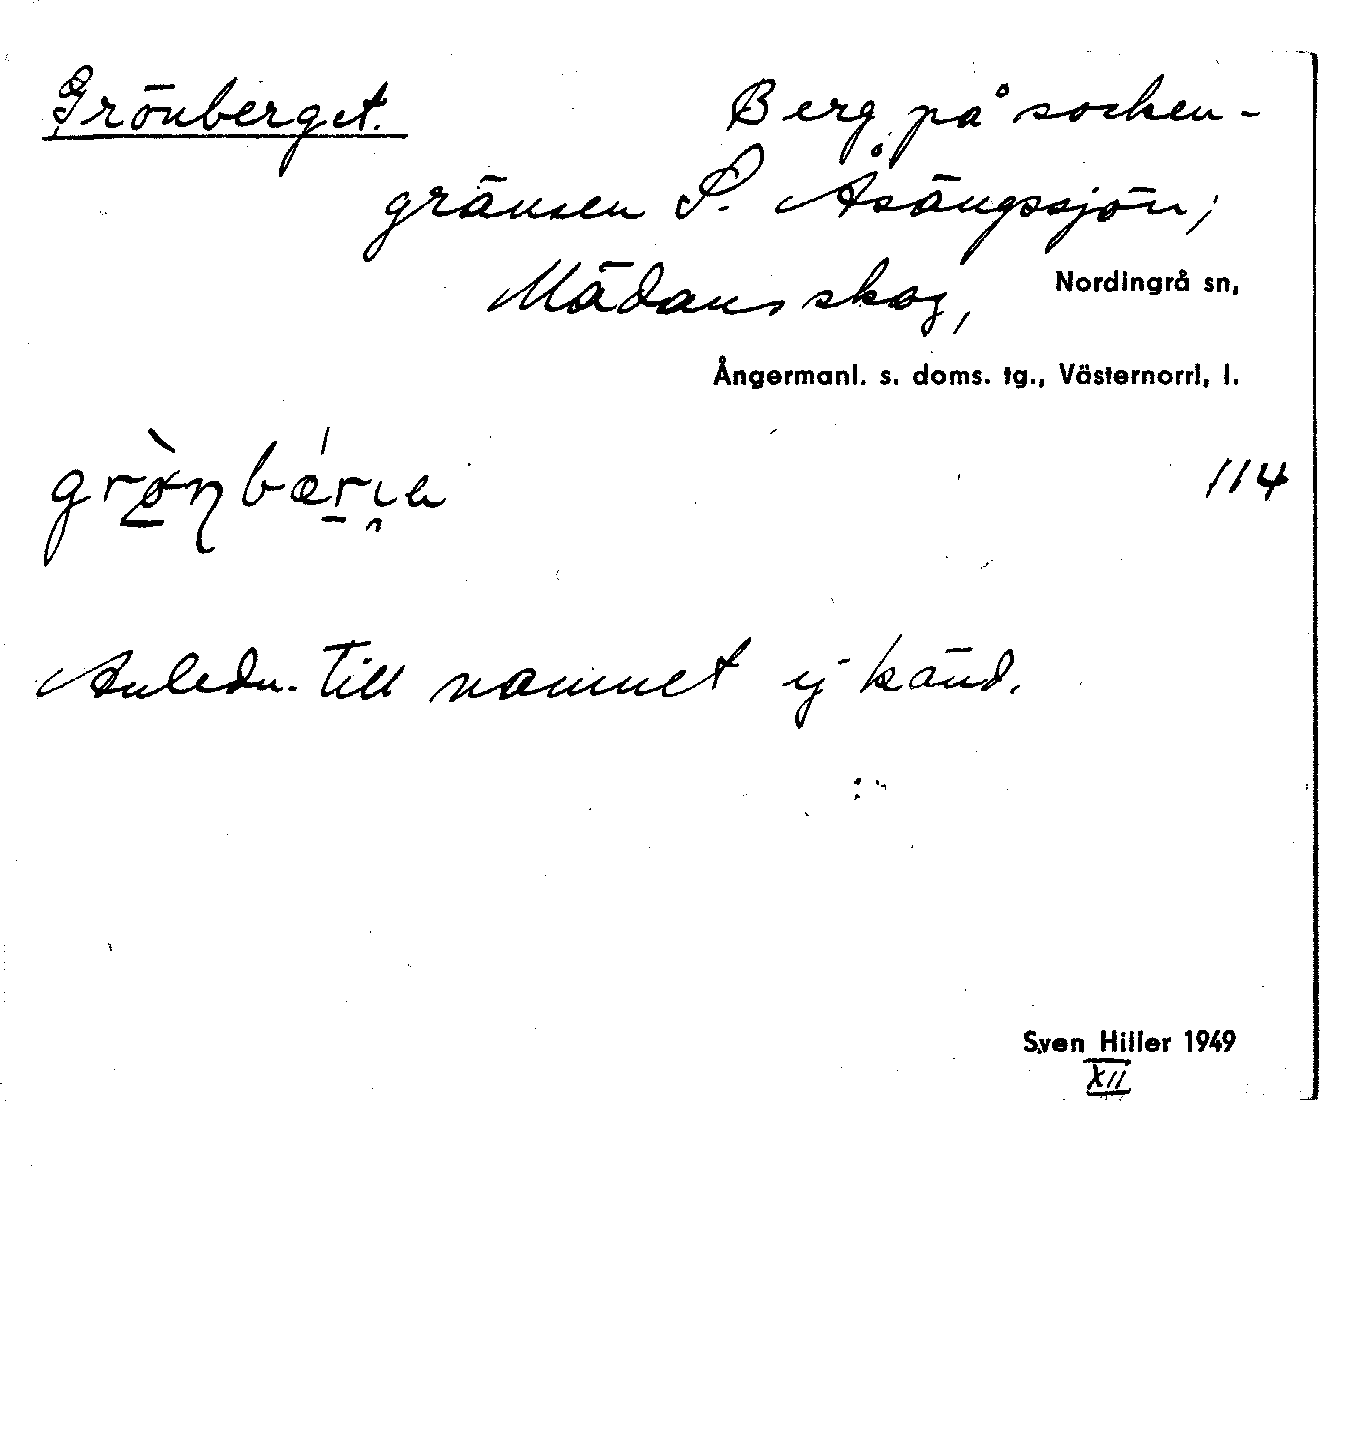 Grönberget.
Berg på socken-
gränsen S. Åsängssjön;
Mädans skog,
Nordingrå sn,
Ångermanl. s. doms. tg., Västernorrl, l.
114
Anledn. till namnet ej känd.
Sven Hiller 1949
XII